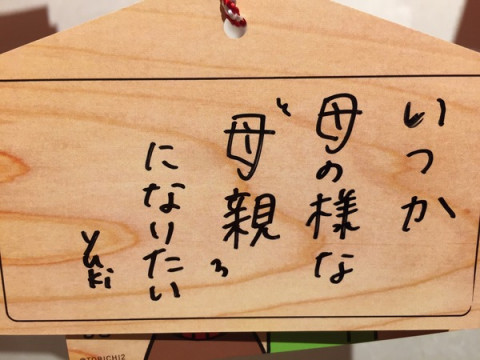 いつか
母の様な
母親
になりたい
yuki